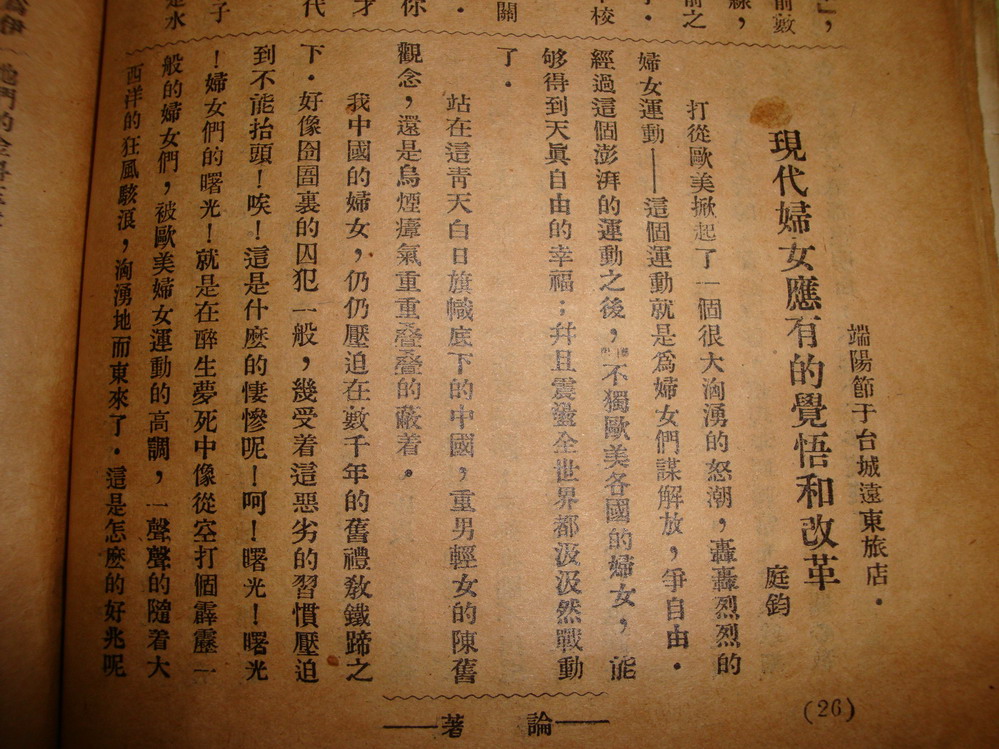 端陽節于台城遠東旅店．
現代婦女應有的覺悟和改革
庭鈞
打從歐美掀起了一個很大洶湧的怒潮，轟轟烈烈的
婦女運動——這個運動就是爲婦女們謀解放，爭自由．
經過這個澎湃的運動之後，不獨歐美各國的婦女，能
够得到天眞自由的幸福；幷且震盪全世界都汲汲然戰動
了．
站在這靑天白日旗幟底下的中國，重男輕女的陳舊
觀念，還是烏煙瘴氣重重叠叠的蔽着。
我中國的婦女，仍仍壓迫在數千年的舊禮敎鐵蹄之
下．好像囹圄裏的囚犯一般，幾受着這惡劣的習慣壓迫
到不能抬頭！唉！這是什麽的悽慘呢！呵！曙光！曙光
！婦女們的曙光！就是在醉生夢死中像從空打個霹靂一
般的婦女們，被歐美婦女運動的高調，一聲聲的隨着大
西洋的狂風駭浪，洶湧地而東來了．這是怎麽的好兆呢
論著
(26)